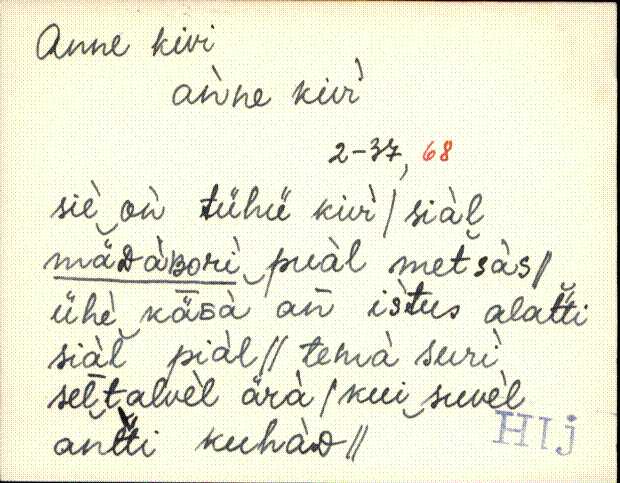 Anne kivi
aǹne kivì
2-37, 68
siè‿on̆ tühü kivì / siàl
mäᴅàʙorì‿puàl metsàs //
ühè‿kä̆ʙà an̄ is̀tus alat̆ti
siàl̆ piàl // temà surì
sel̄talvèl ärà / kui‿suvèl
an̆t̆ti kuhàᴅ //
HIj